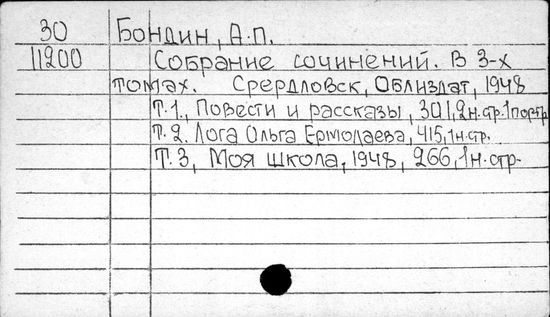 30 Бондин, А.П.
11200 Собрание сочинений. В 3-х
томах. Срердловск, Облиздат, 1948
Т.1., Повести и рассказы, 301,2н.стр.1портр.
Т.2. Лога Ольга Ермолаева, 415,1н.стр.
Т.3, Моя школа, 1948, 266,1н.стр.